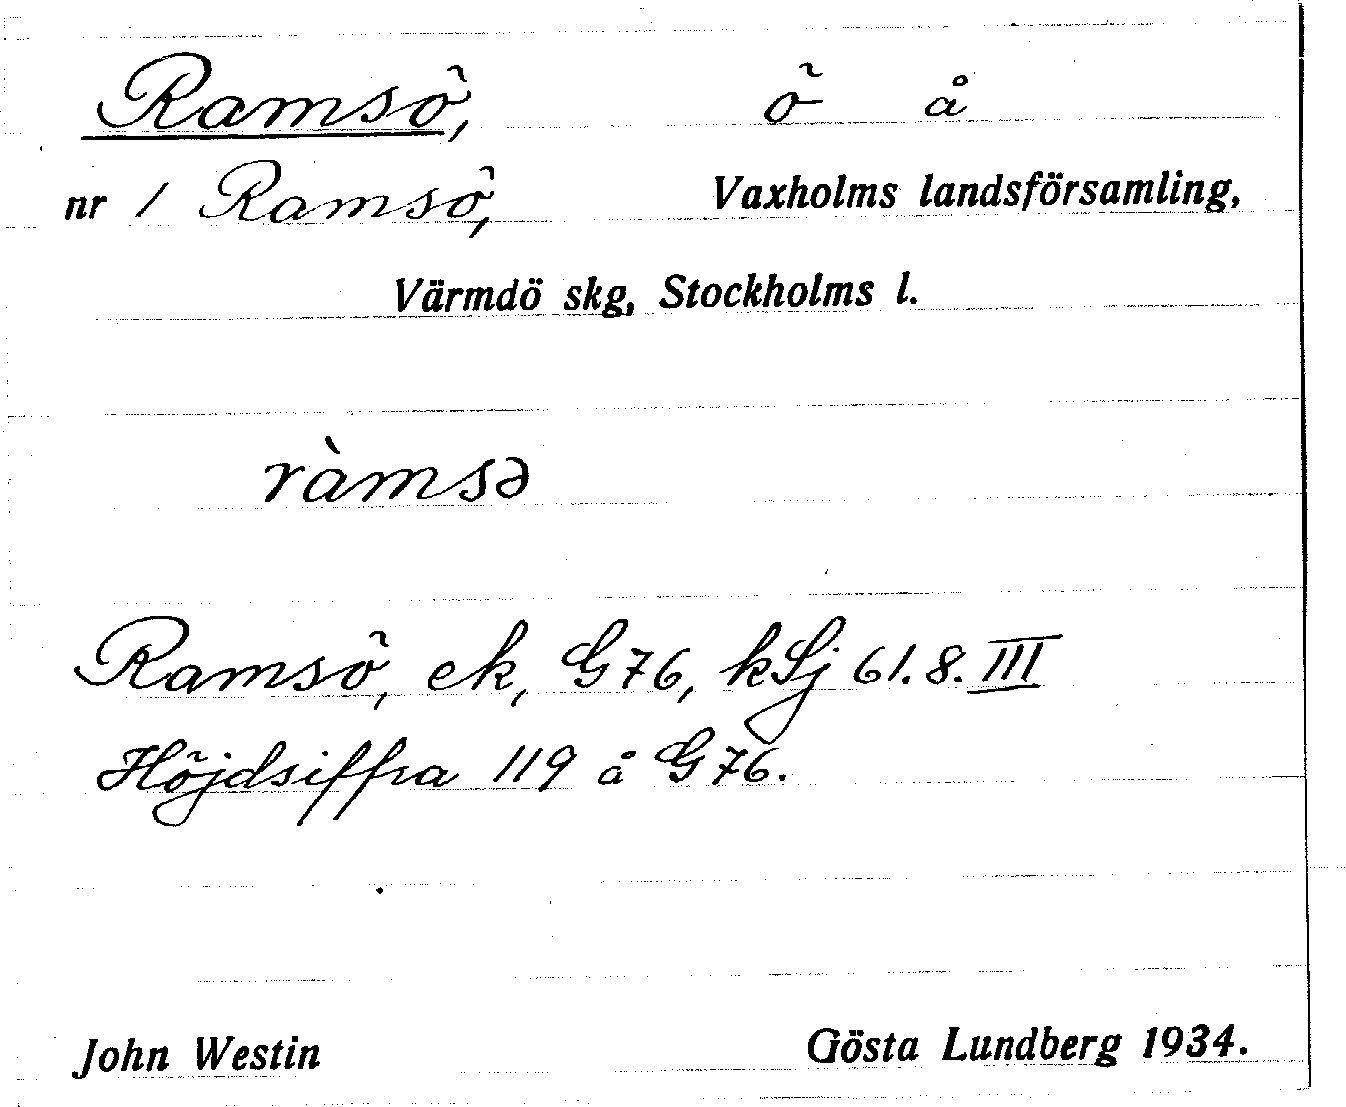 Ramsö, ö å
nr 1 Ramsö, Vaxholms landsförsamling,
Värmdö skg, Stockholms l.
ràmsə
Ramsö, ek, G 76, kSj 61.8.III
Höjdsiffra 119 å G 76.
John Westin Gösta Lundberg 1934.